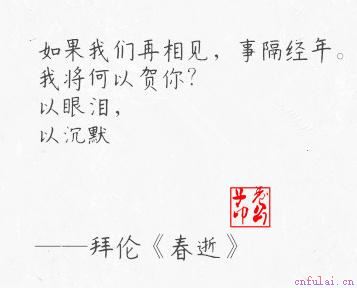 如果我们再相见，事隔经年。
我将何以贺你？
以眼泪，
以沉默
——拜伦《春逝》
cnfulai.cn